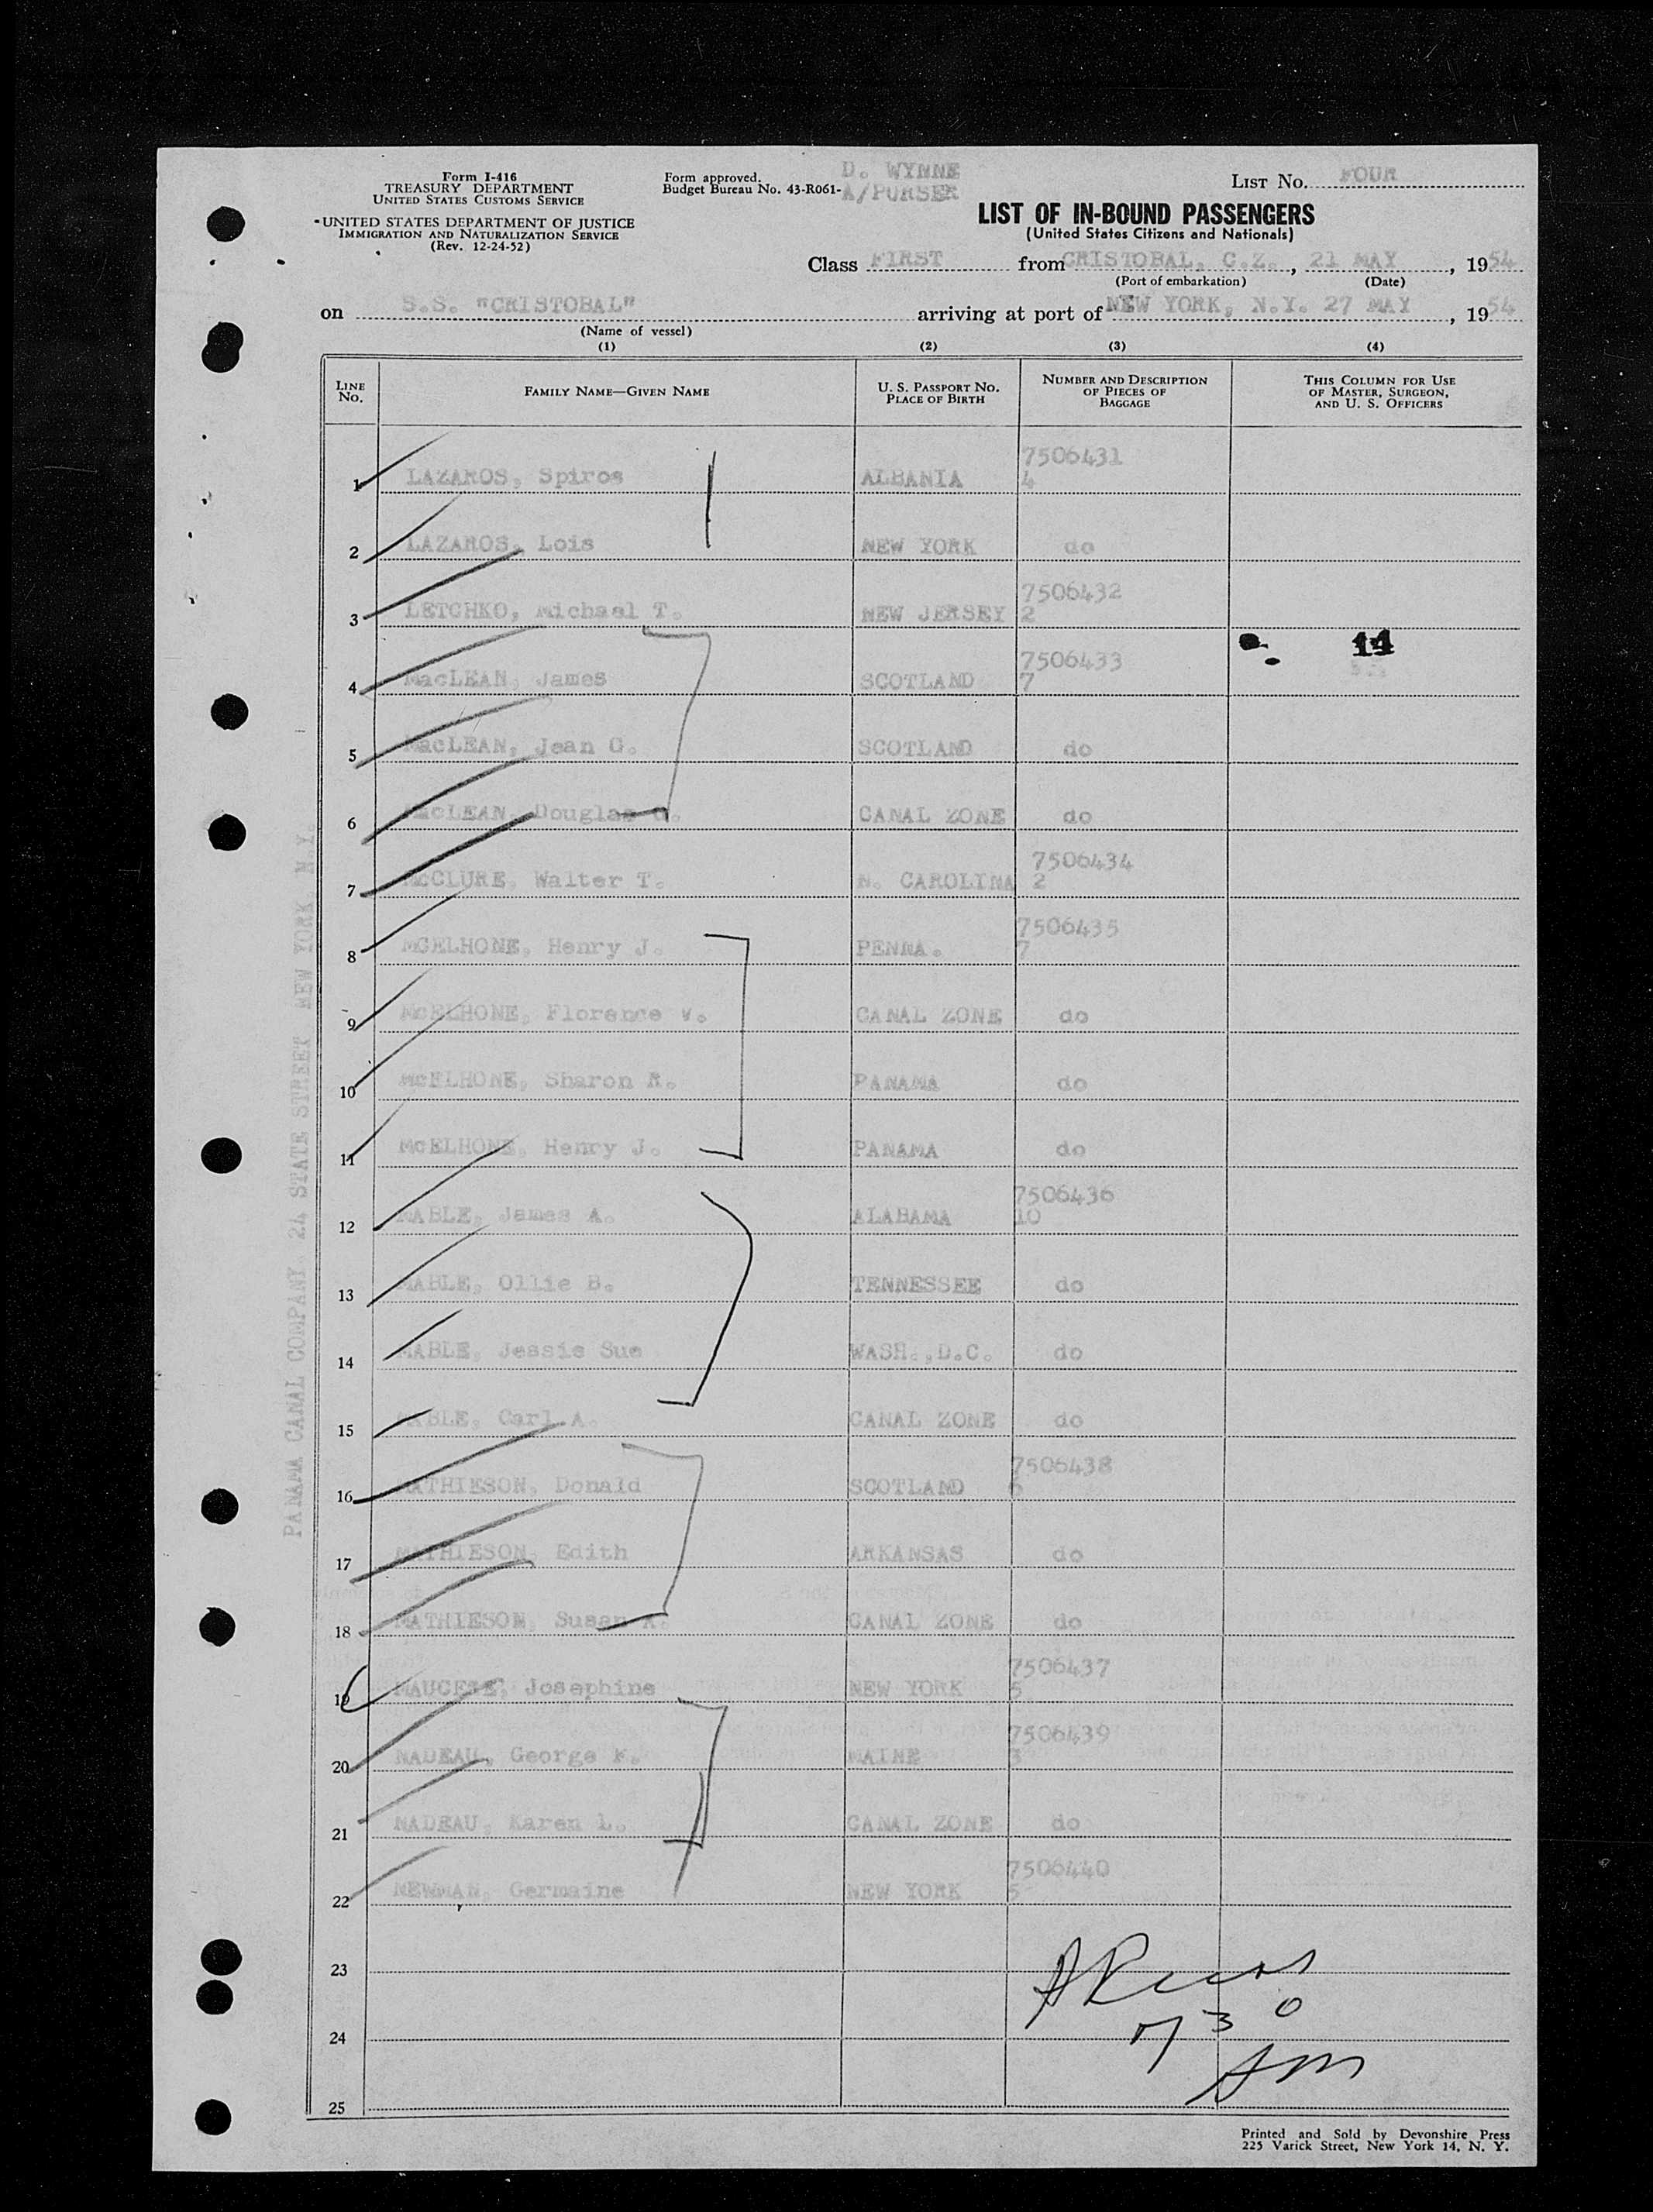 Form I-416
TREASURY DEPARTMENT
UNITED STATES CUSTOMS SERVICE
UNITED STATES DEPARTMENT OF JUSTICE
IMMIGRATION AND NATURALIZATION SERVICE
(Rev. 12-24-52)
Form approved.
Budget Bureau No. 43-R061-
D. WYNNE
A/PURSER
LIST No. FOUR
LIST OF IN-BOUND PASSENGERS
(United States Citizens and Nationals)
Class FIRST from CRISTOBAL, C.Z., 21 MAY, 1954
(Port of embarkation) (Date)
on S.S. "CRISTOBAL" arriving at port of NEW YORK, N.Y. 27 MAY, 1954
(Name of vessel)
(1) (2) (3) (4)
LINE No. FAMILY NAME—GIVEN NAME U. S. PASSPORT NO. PLACE OF BIRTH NUMBER AND DESCRIPTION OF PIECES OF BAGGAGE THIS COLUMN FOR USE OF MASTER, SURGEON, AND U. S. OFFICERS
7506431
1 LAZAROS, Spiros ALBANIA 4
2 LAZAROS, Lois NEW YORK do
7506432
3 LETCHKO, Michael T. NEW JERSEY 2
14
7506433
4 MacLEAN, James SCOTLAND 7
5 MacLEAN, Jean G. SCOTLAND do
6 MacLEAN, Douglas G. CANAL ZONE do
7506434
7 McCLURE, Walter T. N. CAROLINA 2
7506435
8 MCELHONE, Henry J. PENNA. 7
9 McELHONE, Florence W. CANAL ZONE do
10 McELHONE, Sharon R. PANAMA do
11 McELHONE, Henry J. PANAMA do
7506436
12 MABLE, James A. ALABAMA 10
13 MABLE, Ollie B. TENNESSEE do
14 MABLE, Jessie Sue WASH.,D.C. do
15 MABLE, Carl A. CANAL ZONE do
7506438
16 MATHIESON, Donald SCOTLAND 6
17 MATHIESON, Edith ARKANSAS do
18 MATHIESON, Susan CANAL ZONE do
7506437
19 Josephine NEW YORK 5
7506439
20 NADEAU, George F. MAINE 3
21 NADEAU, Karen L. CANAL ZONE do
7506440
22 NEWMAN, Germaine NEW YORK 5
23
730
24
AM
25
PANAMA CANAL COMPANY 24 STATE STREET NEW YORK N Y.
Printed and Sold by Devonshire Press
225 Varick Street, New York 14, N. Y.